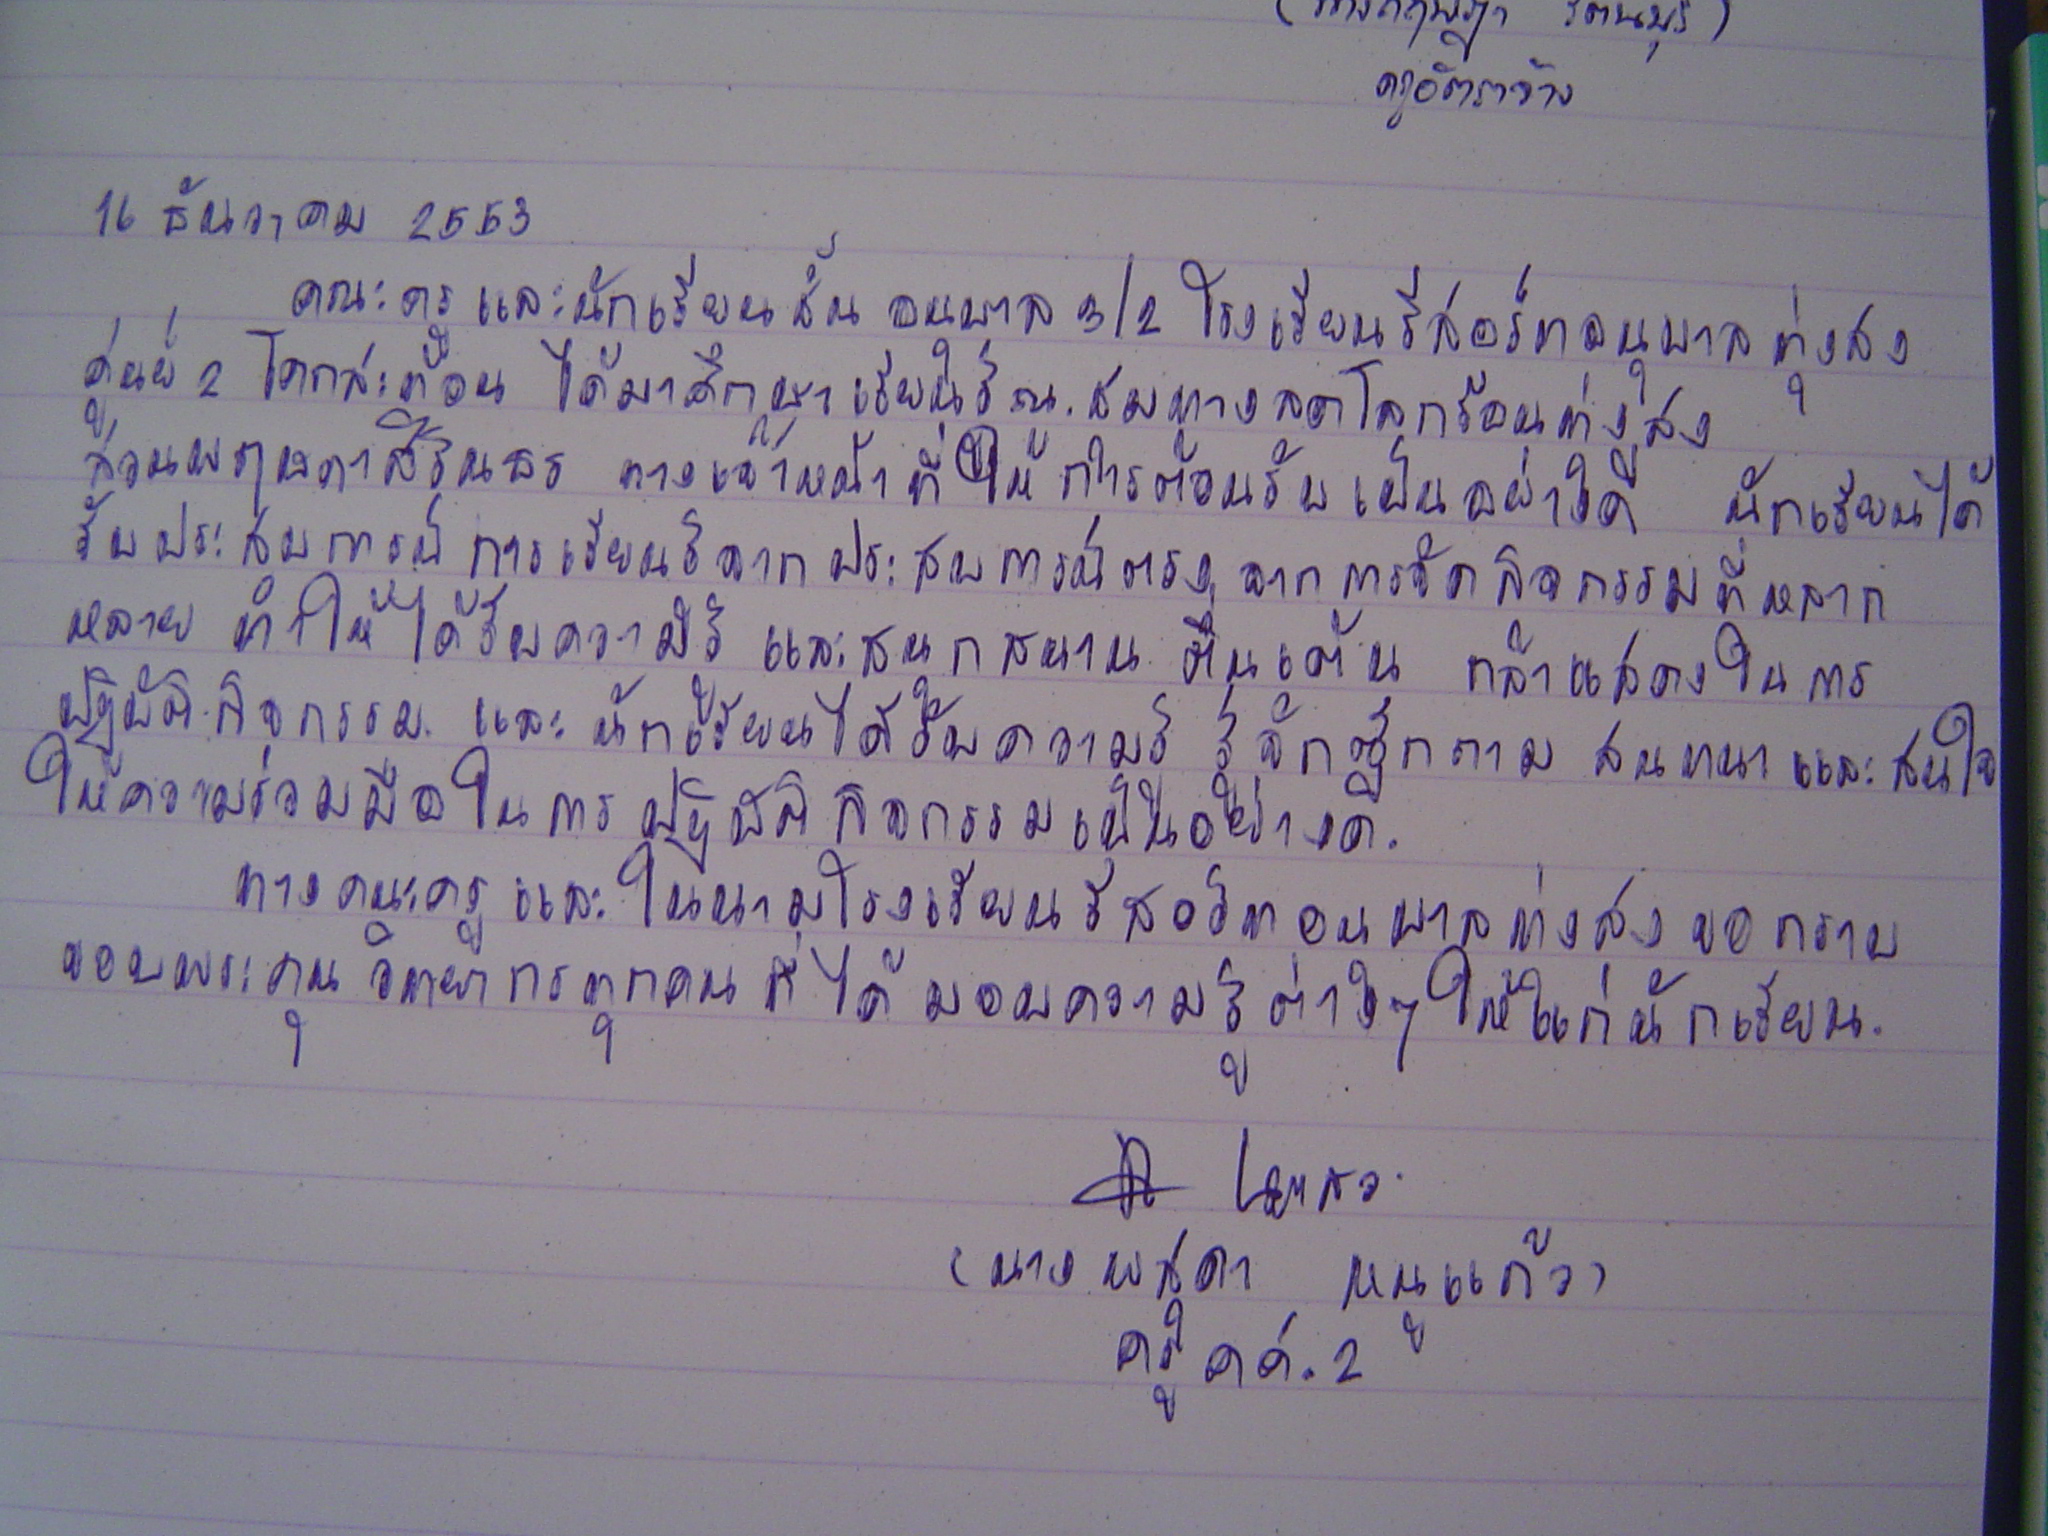 รัตนบุรี)
ครูอัตราจ้าง
16 ธันวาคม 2553
คณะครูและนักเรียนชั้น อนุบาล 3/2 โรงเรียนรีสอร์ทอนุบาลทุ่งสง
ศูนย์ 2 โคกสะท้อน ได้มาศึกษาเรียนรู้ ณ. สมทางลดโลกร้อนทุ่งสง
สวนพฤกษาสิรินธร ทางเจ้าหน้าที่ให้การต้อนรับเป็นอย่างดี นักเรียนได้
รับประสบการณ์การเรียนรู้จากประสบการณ์ตรง จากการจัดกิจกรรมที่หลาก
หลาย ทำให้ได้รับความรู้ และสนุกสนาน ตื่นเต้น กล้าแสดงในการ
ปฏิบัติกิจกรรม และนักเรียนได้รับความรู้ รู้จักซักถาม สนทนาและสนใจ
ให้ความร่วมมือในการปฏิบัติกิจกรรมเป็นอย่างดี.
ทางคณะครูและในนามโรงเรียนรีสอร์ทอนุบาลทุ่งสงขอกราบ
ขอบพระคุณวิทยากรทุกคนที่ได้มอบความรู้ต่างๆ ให้แก่นักเรียน.
(นาง หนูแก้ว)
ครู คศ.2